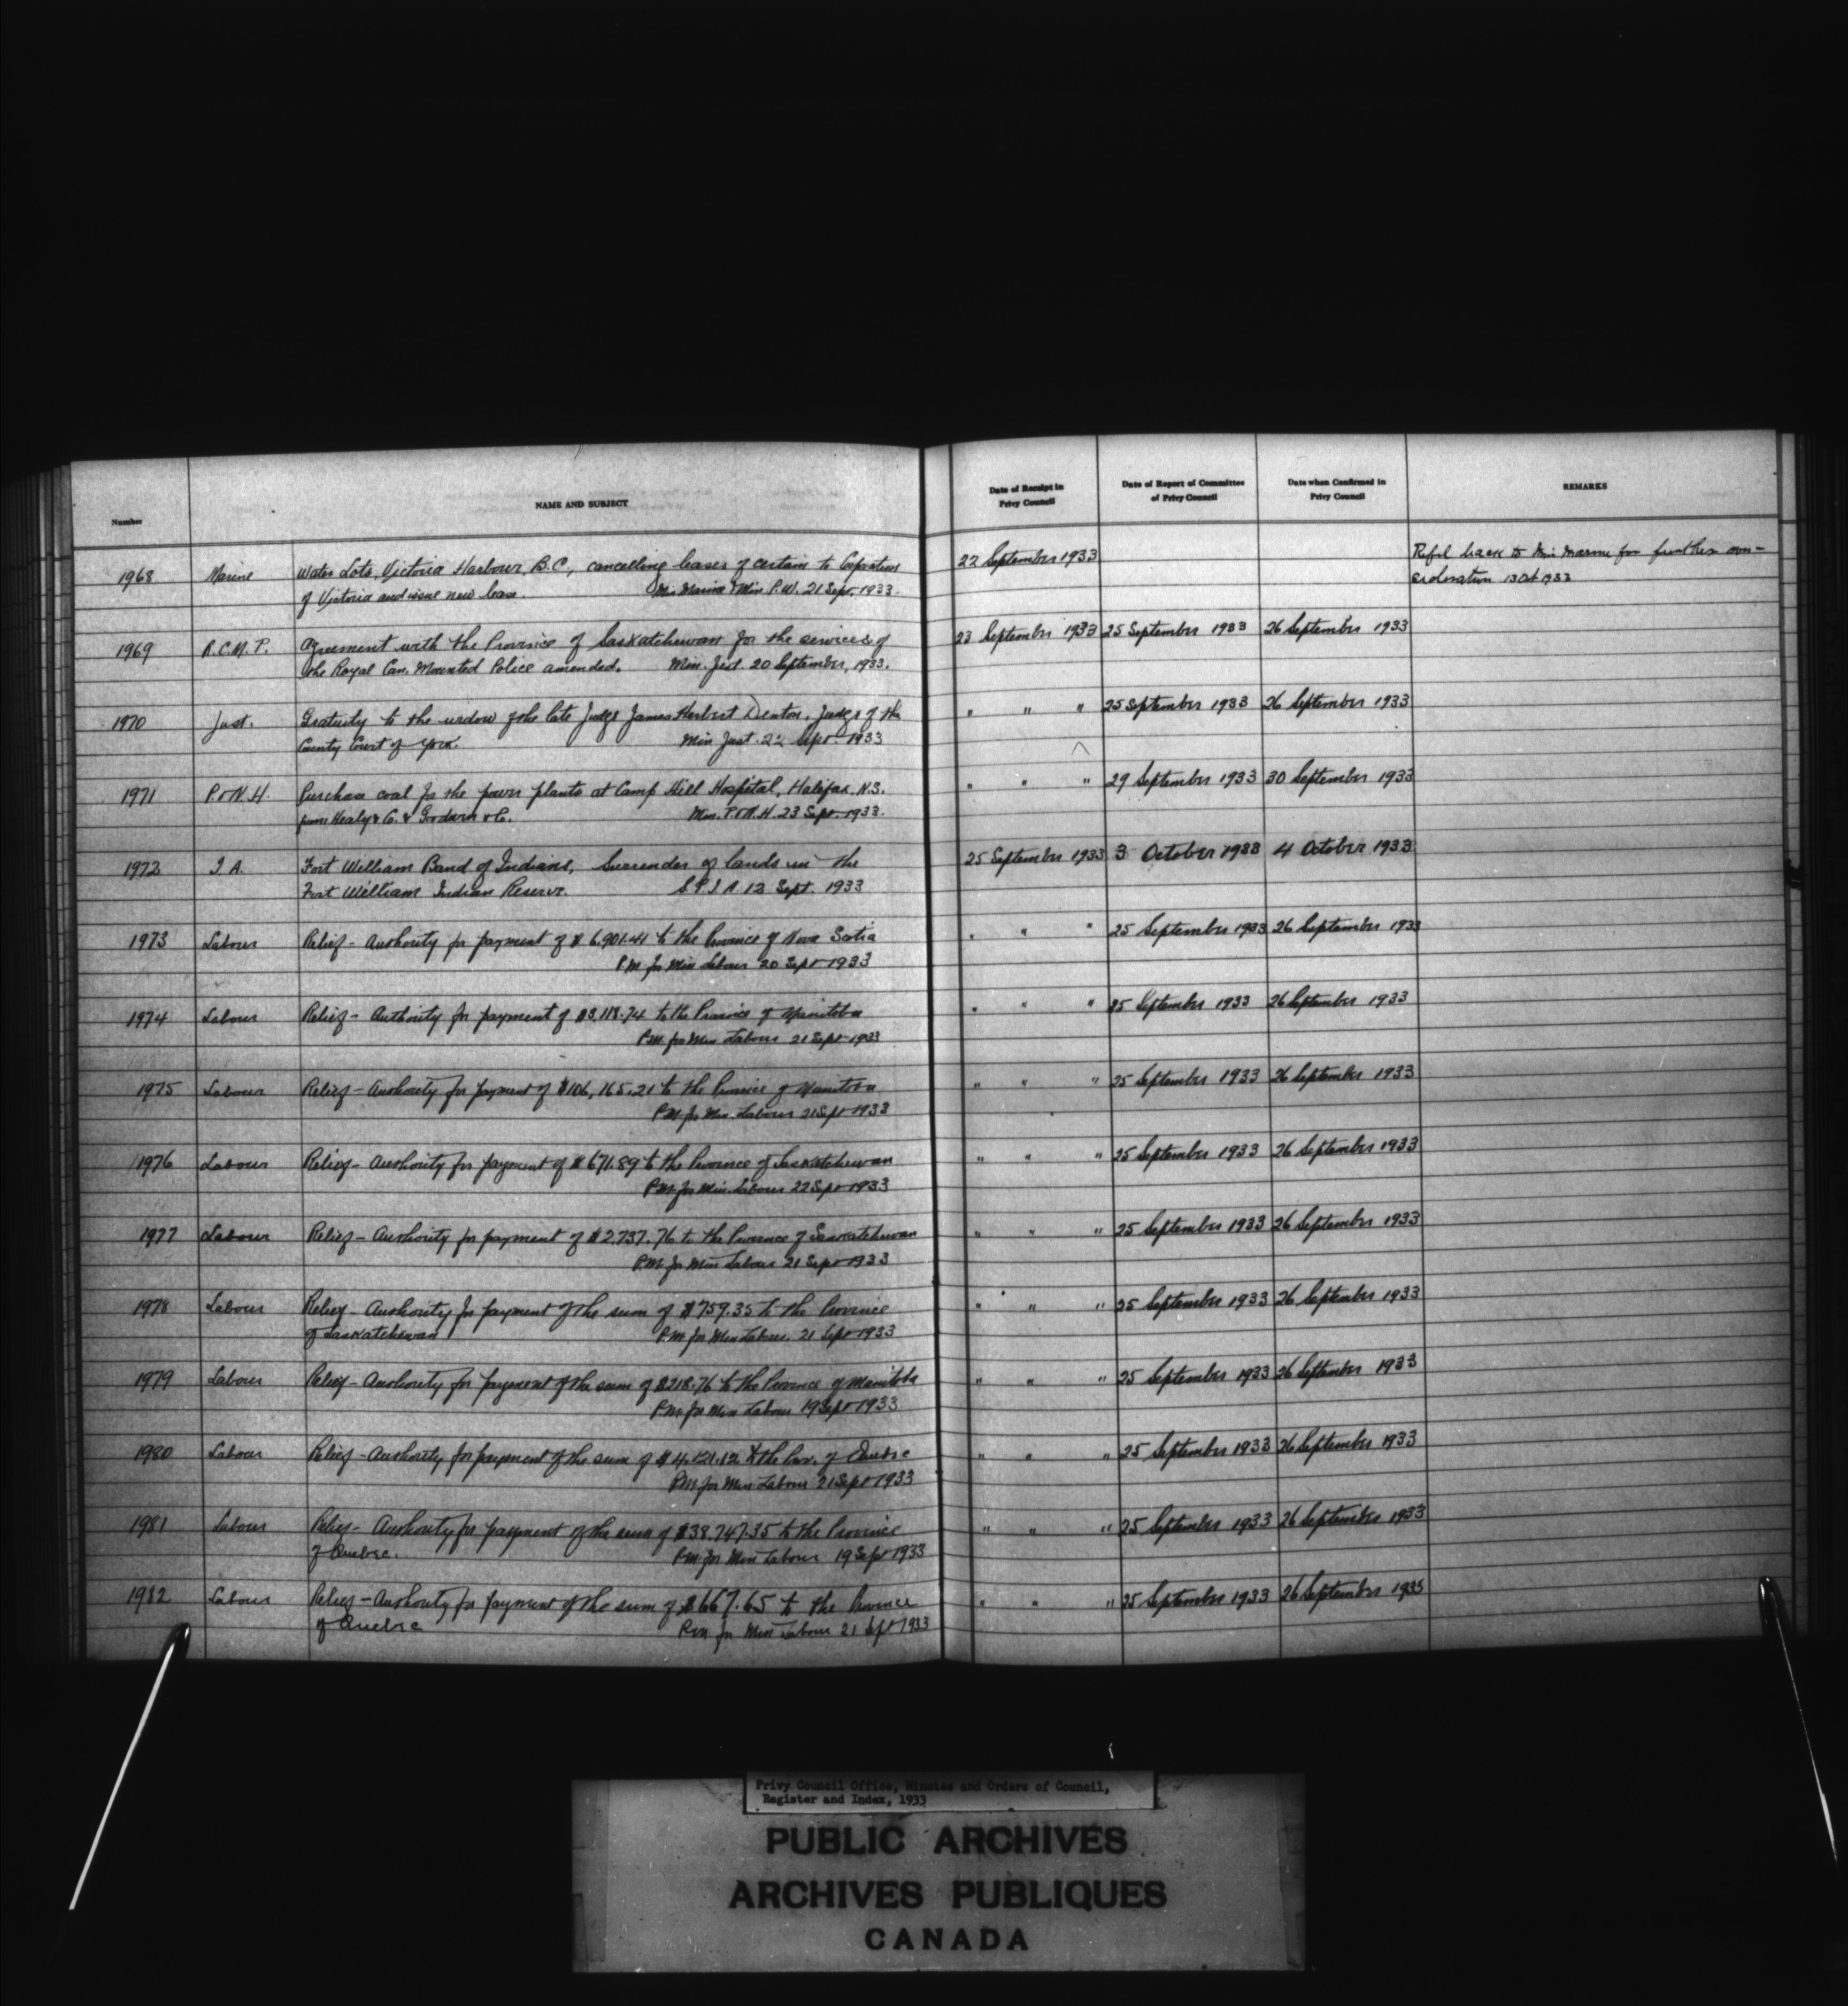 Number
NAME AND SUBJECT
Date of Receipt in
Privy Council
Date of Report of Committee
of Privy Council
Date when Confirmed in
Privy Council
REMARKS
1968 Marine Water Lots, Victoria Harbour, B.C., cancelling leases of certain to Corporation 22 September 1933 back to Min Marine for further con-
of Victoria and issue new lease. Min Marine & Min P.W. 21 Sept. 1933. sideration 13 Oct 1933
1969 R.C.M.P. Agreement with the Province of Saskatchewan for the services of 23 September 1933 25 September 1933 26 September 1933
the Royal Can. Mounted Police amended. Min. Just. 20 September, 1933.
1970 Just. Gratuity to the widow of the late Judge James Herbert Denton, Judge of the " " " 25 September 1933 26 September 1933
County Court of York. Min Just. 22 Sept. 1933
1971 P. & N.H. Purchase coal for the power plants at Camp Hill Hospital, Halifax, N.S. " " " 29 September 1933 30 September 1933
from Healy & Co. & Goodwin & Co. Min. P. & N.H. 23 Sept. 1933.
1972 I A. Fort William Band of Indians, Surrender of lands in the 25 September 1933 3 October 1933 4 October 1933
Fort William Indian Reserve. S.G.I.A. 12 Sept. 1933
1973 Labour Relief - Authority for payment of $6,901.41 to the Province of Nova Scotia " " " 25 September 1933 26 September 1933
P.M. for Min Labour 20 Sept 1933
1974 Labour Relief - Authority for payment of $3,118.74 to the Province of Manitoba " " " 25 September 1933 26 September 1933
P.M. for Min Labour 21 Sept 1933
1975 Labour Relief - Authority for payment of $106,165.21 to the Province of Manitoba " " " 25 September 1933 26 September 1933
P.M. for Min. Labour 21 Sept 1933
1976 Labour Relief - Authority for payment of $671.89 to the Province of Saskatchewan " " " 25 September 1933 26 September 1933
P.M. for Min. Labour 22 Sept 1933
1977 Labour Relief - Authority for payment of $2,737.76 to the Province of Saskatchewan " " " 25 September 1933 26 September 1933
P.M. for Min Labour 21 Sept 1933
1978 Labour Relief - Authority for payment of the sum of $759.35 to the Province " " " 25 September 1933 26 September 1933
of Saskatchewan P.M. for Min Labour. 21 Sept 1933
1979 Labour Relief - Authority for payment of the sum of $218.76 to the Province of Manitoba " " " 25 September 1933 26 September 1933
P.M. for Min Labour 19 Sept 1933
1980 Labour Relief - Authority for payment of the sum of $4,121.12 to the Prov. of Quebec " " " 25 September 1933 26 September 1933
P.M. for Min Labour 21 Sept 1933
1981 Labour Relief - Authority for payment of the sum of $38,747.35 to the Province " " " 25 September 1933 26 September 1933
of Quebec. P.M. for Min Labour 19 Sept 1933
1982 Labour Relief - Authority for payment of the sum of $667.65 to the Province " " " 25 September 1933 26 September 1933
of Quebec P.M. for Min Labour 21 Sept 1933
Privy Council Office, Minutes and Orders of Council,
Register and Index, 1933
PUBLIC ARCHIVES
ARCHIVES PUBLIQUES
CANADA